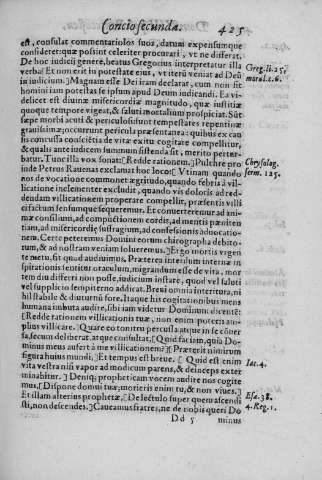 Concio secunda. 425
est, consulat commentarios suos, datum expensumque
consideret: quæ possint celeriter procurari, vt ne differat.
De hoc iudicij genere, beatus Gregorius interpretatur illa
verba: Et non erit in potestate eius, vt iterū veniat ad Deū
in iudicium. Magnum esse Dei iram declarat, cum non sit
homini iam potestas se ipsum apud Deum iudicandi. Ea vi-
delicet est diuinæ misericordiæ magnitudo, quæ iustitiæ
quoque tempore viget, & saluti mortalium prospiciat. Sūt
sæpe morbi acuti & periculosi: sunt tempestates repentinæ
grauissimæ; occurrunt pericula præsentanea: quibus ex cau
sis concussa conscientia de vitæ exitu cogitare compellitur,
& qualis ante iudicem summum sistenda sit, merito pertur-
batur. Tunc illa vox sonat: [Redde rationem.] Pulchre pro
inde Petrus Rauenas exclamat hoc loco: [Vtinam quando
nos de vocatione commonet ægritudo, quando febris à vil-
licatione inclementer excludit, quando vis doloris ad red-
dendam villicationem properare compellit, præsentis villi
ci factum sensumque sequeremur. Et conuerteremur ad ani-
mæ consilium, ad compunctionem cordis, ad mentis pœniten
tiam, ad misericordiæ suffragium, ad confessionis aduocatio-
nem. Certe peteremus Domini eorum chirographa debito-
rum, & ad nostram veniam solueremus.] Ergo mortis vrgen
te metu, sit quod audiuimus. Præterea intersum internæ in
spirationis sentitur oraculum, migrandum esse de vita, mor
tem diu differri non posse, iudicium instare, quod vel saluti
vel supplicio sempiterno addicat. Breui omnia interitura, ni
hil stabile & diuturnū fore. Itaque his cogitationibus mens
humana imbuta audire, sibi iam videtur Dominum dicentē:
[Redde rationem villicationis tuæ, non enim poteris am-
plius villicare.] Quare eo tonitru perculsa atque in se cōuer
sa, secum deliberat, atque consultat: [Quid faciam, quia Do-
minus meus aufert à me villicationem?] Præterit nimirum
figura huius mundi. [Et tempus est breue.] [Quid est enim
vita vestra nisi vapor ad modicum parens, & deinceps exter
minabitur.] Denique propheticam vocem audire nos cogite
mus, [Dispone domui tuæ: morieris enim tu, & non viues.]
Et illam alterius prophetæ, [De lectulo super quem ascendi
sti, non descendes.] Caueamus fratres, ne de nobis queri Do
Dd 5 minus
Greg. li. 25.
moral. c. 6.
Chrysolog.
serm. 125.
Iac. 4.
Esa. 38.
4. Reg. 1.